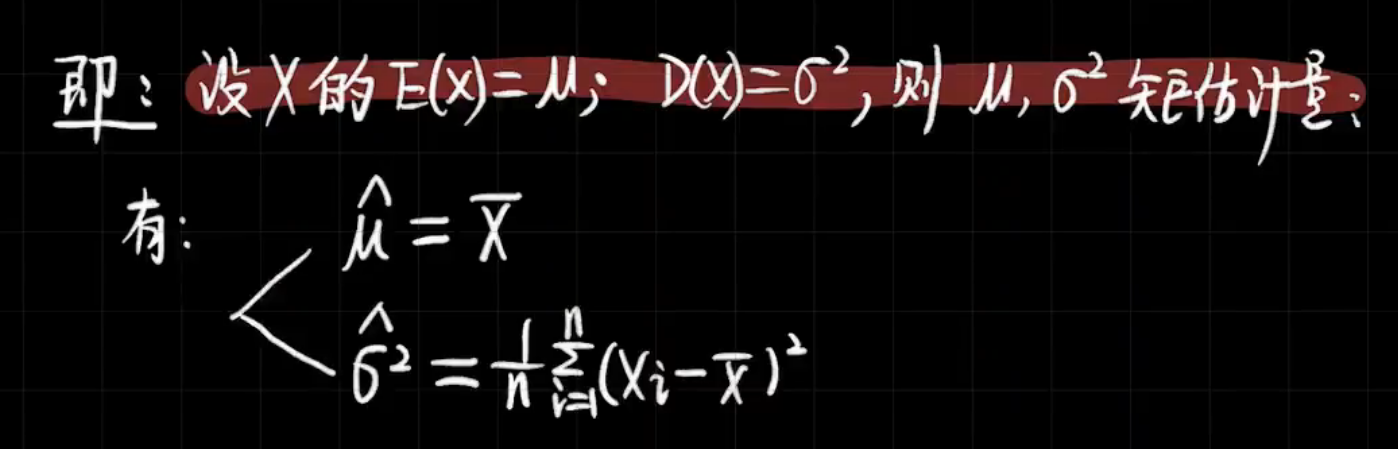 即：设X的E(X)=μ；D(X)=σ²，则μ，σ²矩估计量：
有：
μ̂=X̄
σ̂²=1/n ∑ᵢ₌₁ⁿ(Xᵢ-X̄)²